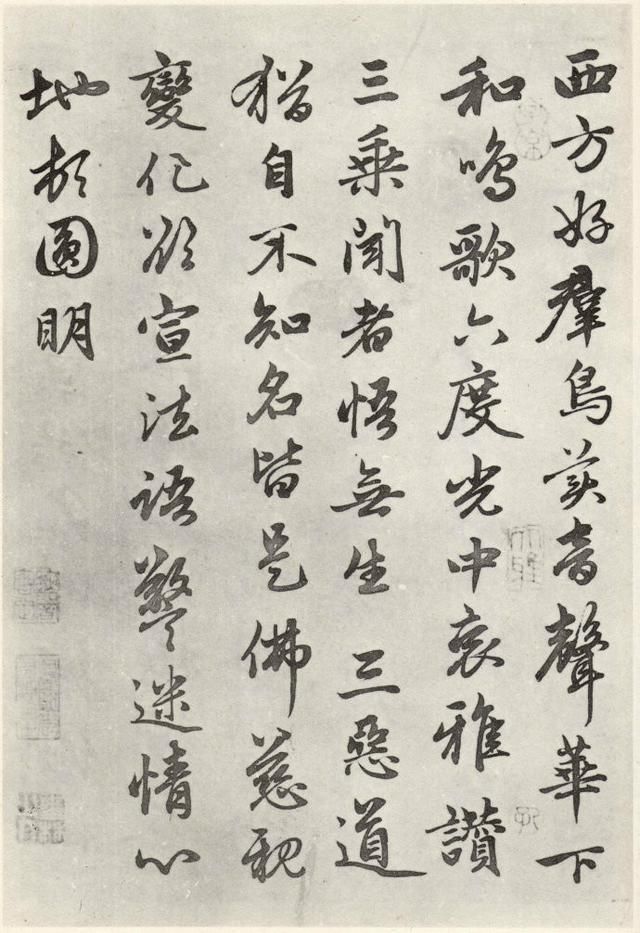 西方好羣鳥美音聲華下
和鳴歌六度光中哀雅讚
三乘聞者悟無生三惡道
猶自不知名皆是佛慈親
變化欲宣法語警迷情心
地頓圓明